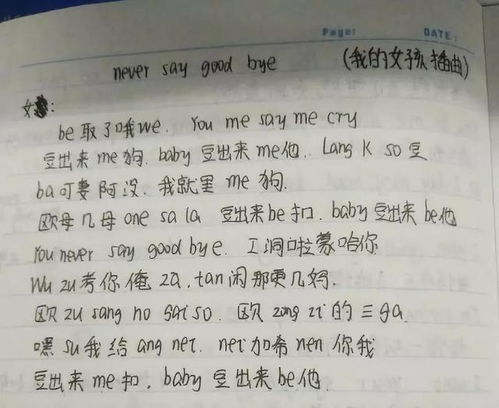 Page:
DATE:
never say good bye (我的女孩插曲)
女:
be 取了哦we. You me say me cry
豆出来 me 狗. baby 豆出来 me他. Lang K so 豆
ba可妻阿没. 我就里 me 狗.
欧母几母 one sa la 豆出来be扣. baby 豆出来 be他
You never say good bye. 工洞啦蒙哈你
Wu zu考你俺 za, tan闲那更几妈.
欧 zu sang no sai so. 欧 zong zi 的 三 ga.
嘿 su我给 ang net. net加希 nen 你我
豆出来 me 扣. baby 豆出来 be他.